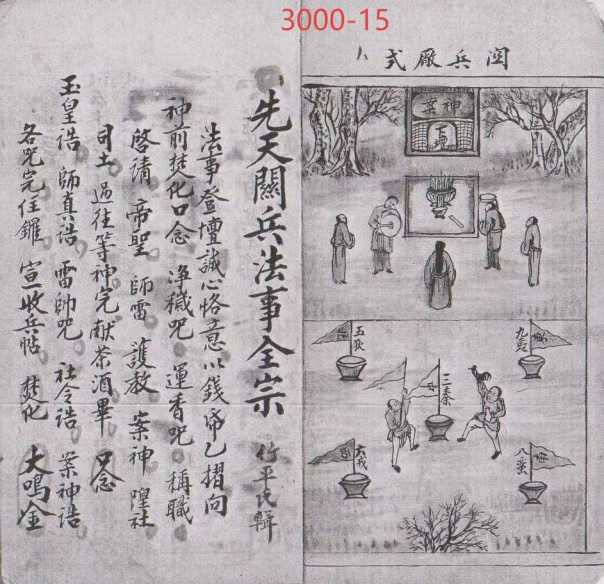 3000-15
関兵厰式
神案
五狄
九夷
三秦
六戎
八蛮
先天關兵法事全宗
竹平氏輯
法事登壇誠心恪意以錢帋乙摺向
神前焚化口念 淨穢呪 運香呪 稱職
啓請 帝聖 師雷 護教 案神 隍社
司土 過往等神完献茶酒畢 口念
玉皇誥 師真誥 雷帥呪 社令誥 案神誥
各咒完住鑼 宣收兵帖 焚化 大鳴金